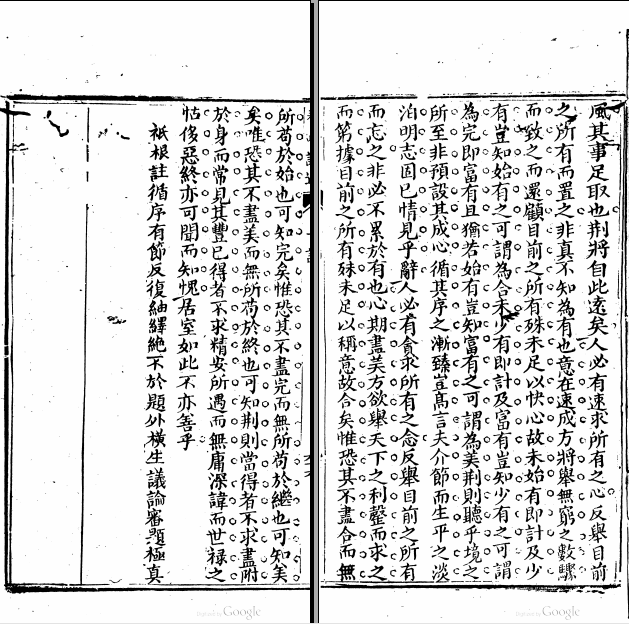 風其事足取也荆將自此遠矣人必有速求所有之心反舉目前
之所有而置之非真不知為有也意在速成方將舉無窮之數驟
而致之而還顧目前之所有殊未足以快心故未始有即計及少
有豈知始有之可謂為合未少有即計及富有豈知少有之可謂
為完即富有且猶若始有豈知富有之可謂為美荆則聽乎境之
所至非預設其成心循其序之漸臻豈髙言夫介節而生平之淡
泊明志固已情見乎辭人必有貪求所有之念反舉目前之所有
而忘之非必不累於有也心期盡美方欲舉天下之利罄而求之
而第據目前之所有殊未足以稱意故合矣惟恐其不盡合而無
所苟於始也可知完矣惟恐其不盡完而無所苟於繼也可知美
矣唯恐其不盡美而無所苟於終也可知荆則當得者不求盡附
於身而常見其豐已得者不求精安所遇而無庸深諱而世祿之
怙侈惡終亦可聞而知愧居室如此不亦善乎
祗根註循序有節反復紬繹絶不於題外橫生議論審題極真
Google
Google